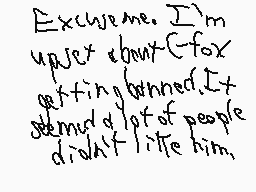 Excuse me. I'm
upset about C-fox
getting banned. It
seemed a lot of people
didn't like him.